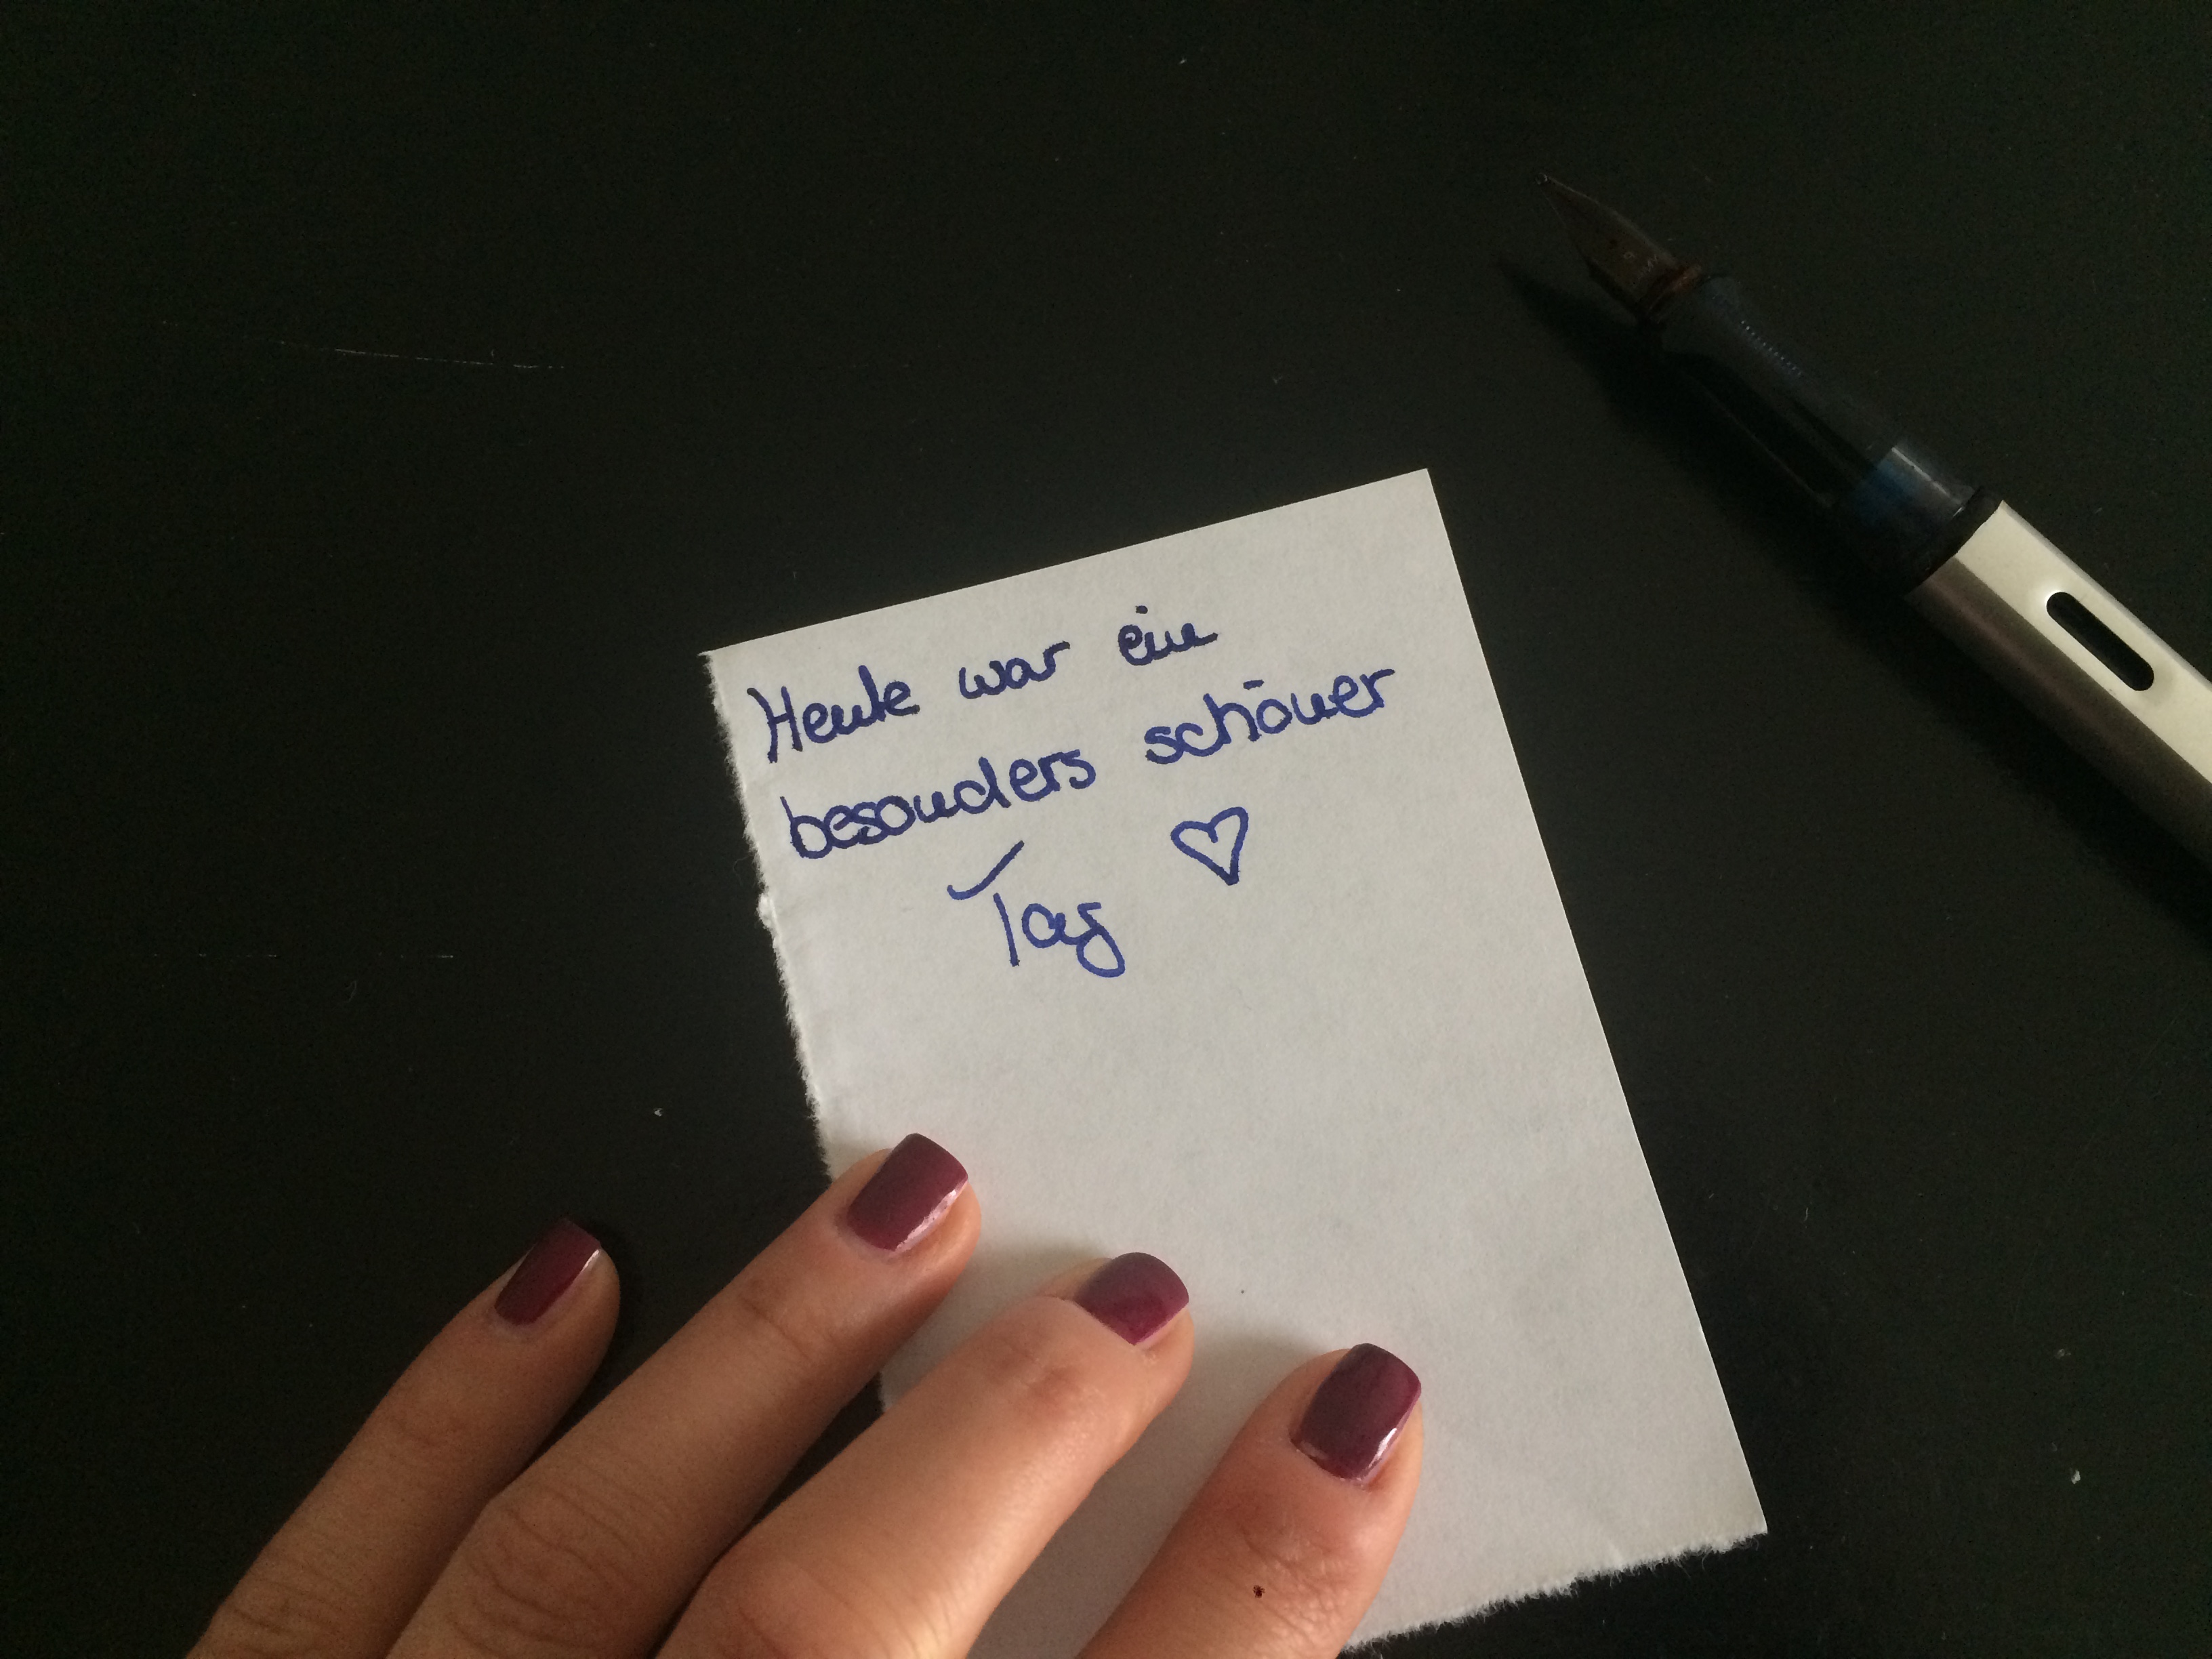 Heute war ein
besonders schöner
Tag ♡